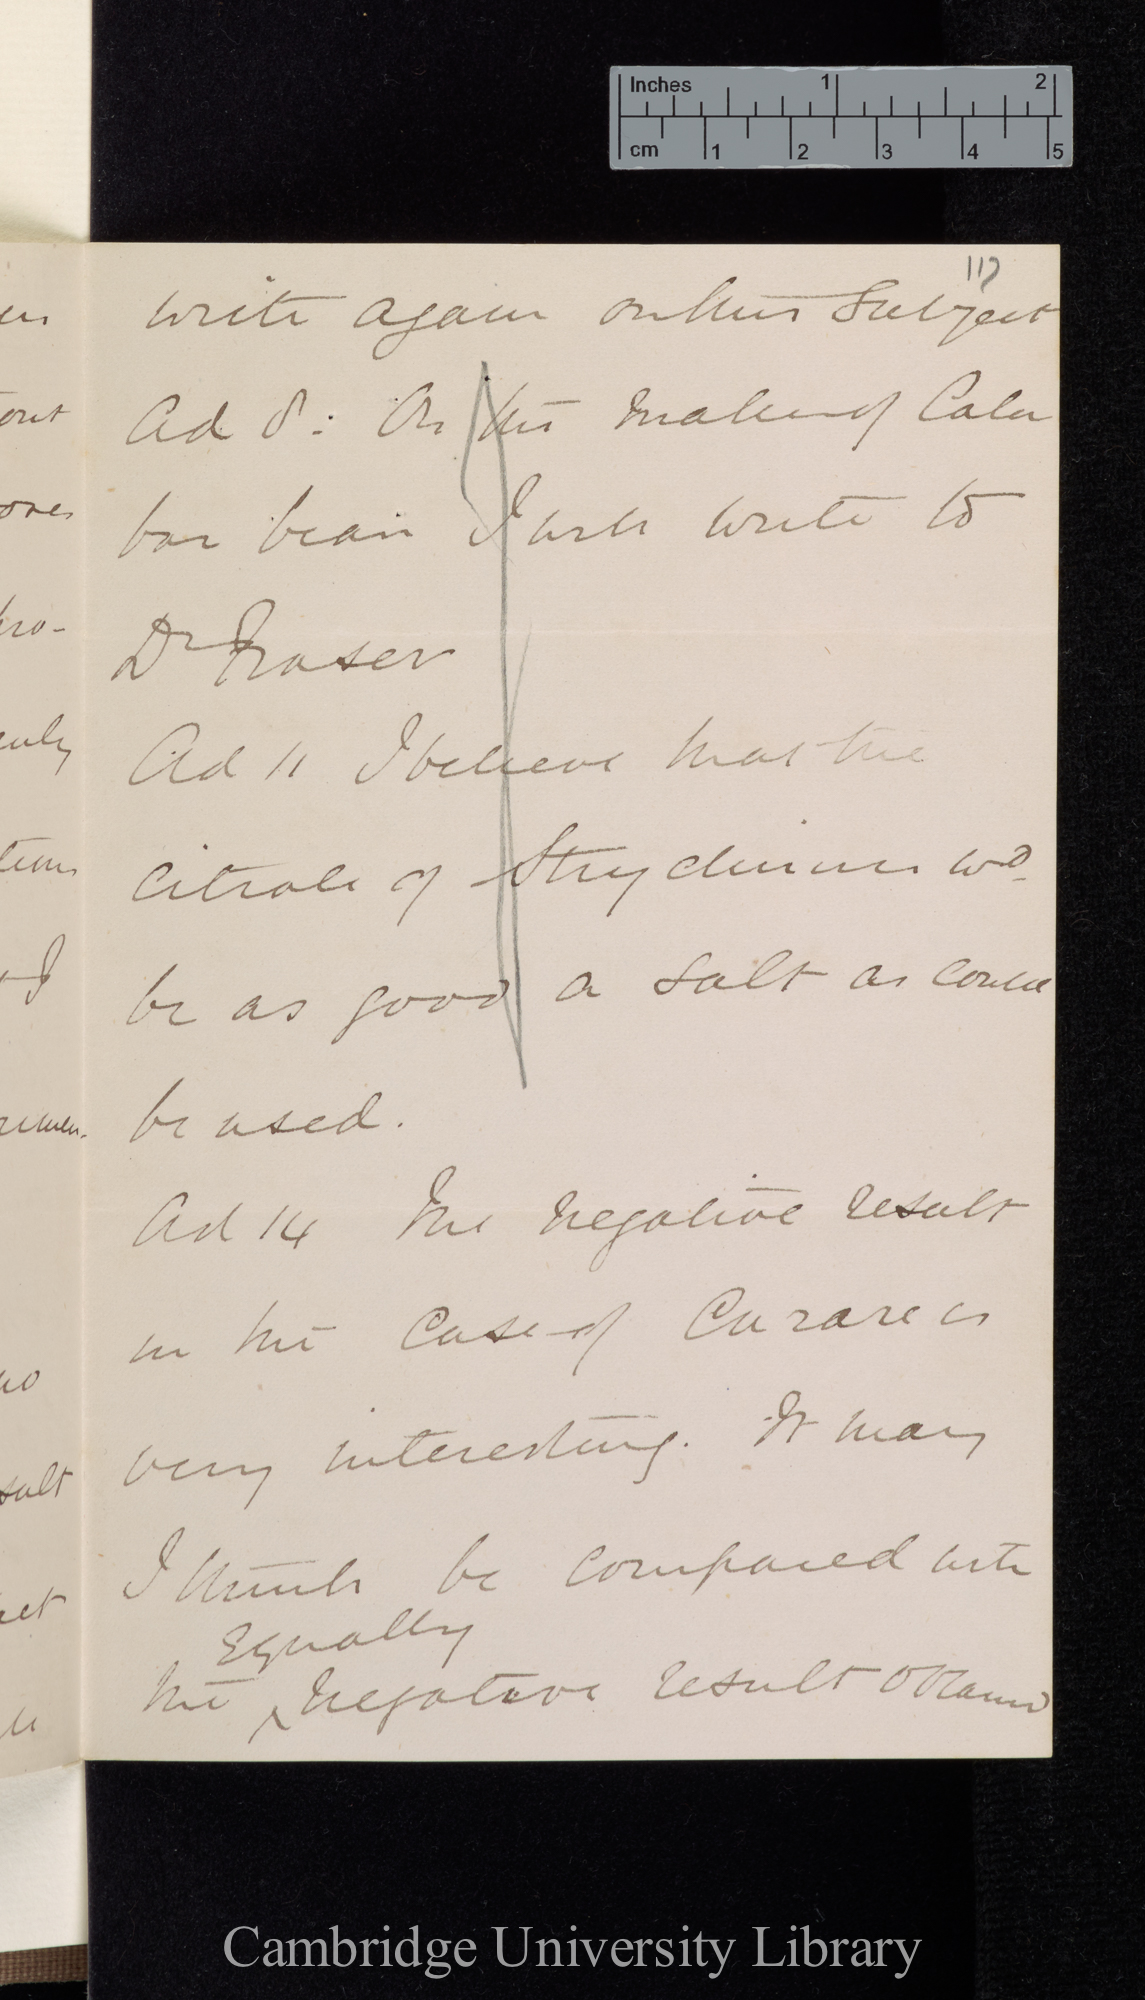 Inches 1 2
cm 1 2 3 4 5
117
write again on this subject
Ad 8: On the matter of Cala
bar bean I will write to
Dr Fraser
Ad 11 I believe that the
Citrate of Strychnine wd.
be as good a salt as could
be used.
Ad 14 The negative result
in the case of Curare is
very interesting. It may
I think be compared with
Equally
the ‸ negative result obtained
out
ones
pro-
tions
I
no
sult
Cambridge University Library